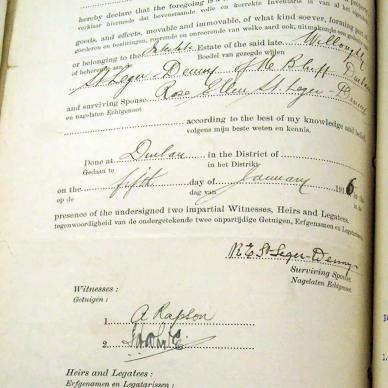 hereby declare that the foregoing is a
verklaar hiermede dat bovenstaande volle en korrekte Inventaris is van al het eigendom,
goods, and effects, movable and immovable, of what kind soever, forming part
goederen en bezittingen, roerende en onroerende van welke aard ook,
or belonging to the Intestate Estate of the said late Willoughby
of behorende aan Boedel van gezegde wijlen
St Leger-Denny of the Bluff Durban
and surviving Spouse, Rose Ellen St Leger-Denny
en nagelaten Echtgenoot
according to the best of my knowledge and belief.
volgens mijn beste weten en kennis.
Done at Durban in the District of
Gedaan te in het Distrikt
on the fifth day of January 1916
op de dag van
presence of the undersigned two impartial Witnesses, Heirs and Legatees.
tegenwoordigheid van de ondergetekende twee onpartijdige Getuigen, Erfgenamen en Legatarissen.
R E St Leger-Denny
Surviving Spouse.
Nagelaten Echtgenoot.
Witnesses :
Getuigen :
1. A Rapson
2.
Heirs and Legatees :
Erfgenamen en Legatarissen :